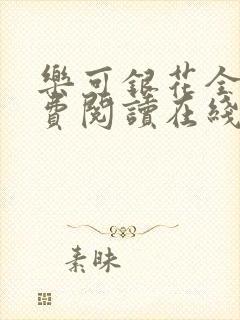 樂可銀花全
費閱讀在綫
素昧